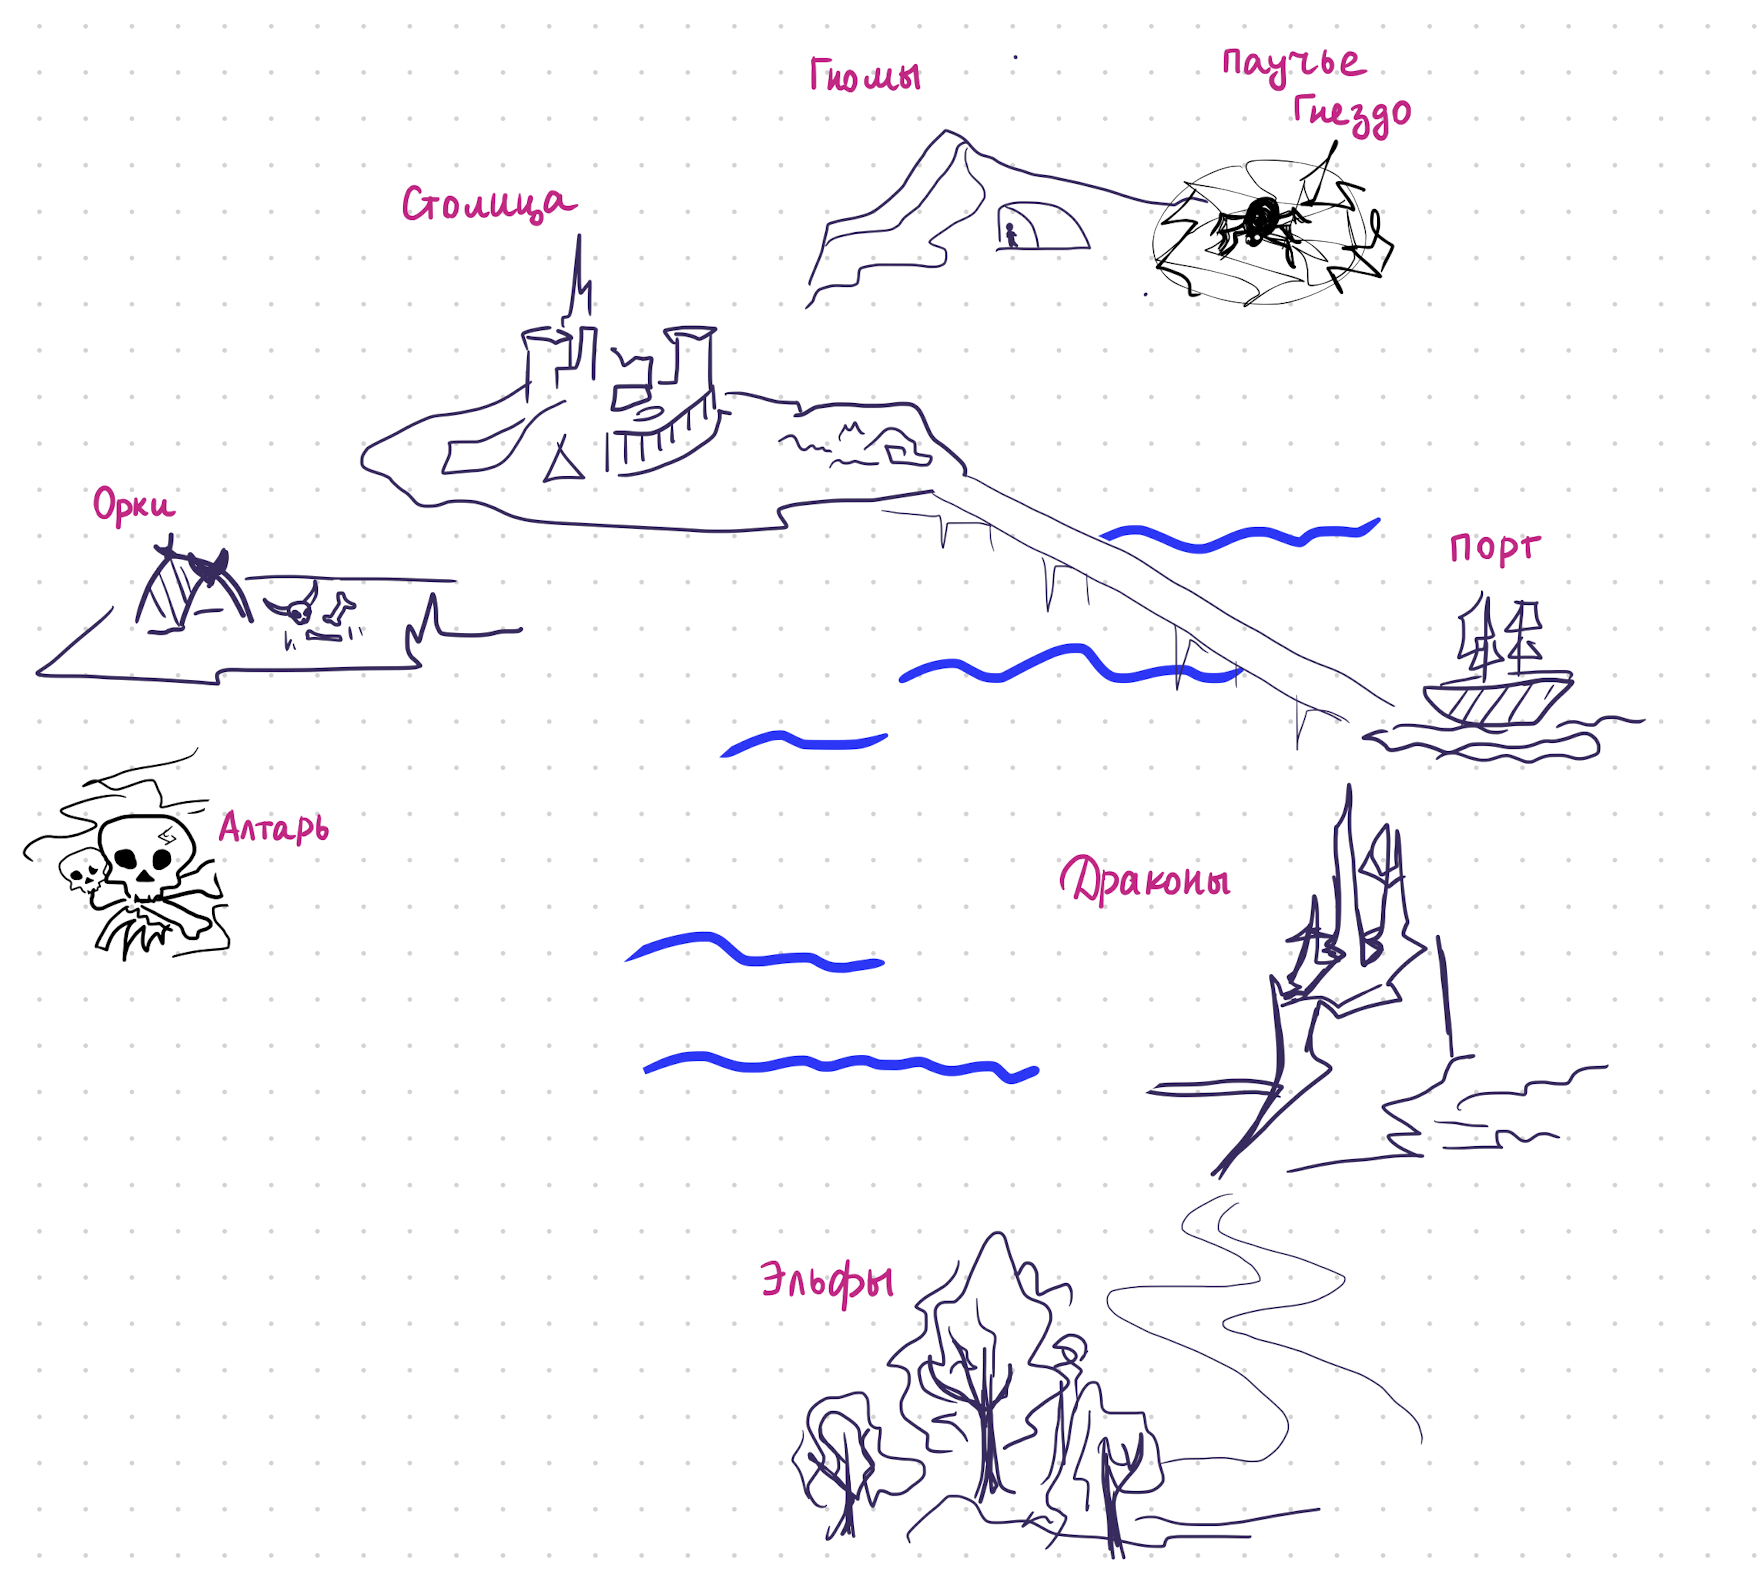 Гномы
паучье
Гнездо
Столица
Орки
порт
Алтарь
Драконы
Эльфы